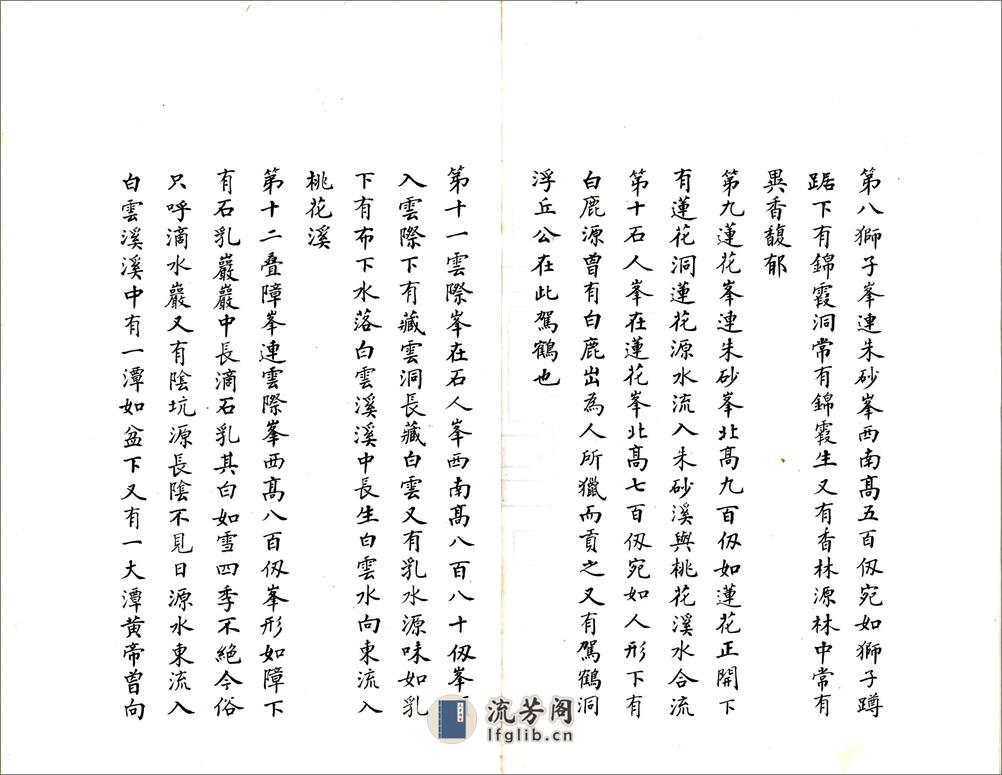 第八獅子峯連朱砂峯西南高五百仭宛如獅子蹲
踞下有錦霞洞常有錦霞生又有香林源林中常有
異香馥郁
第九蓮花峯連朱砂峯北高九百仭如蓮花正開下
有蓮花洞蓮花源水流入朱砂溪與桃花溪水合流
第十石人峯在蓮花峯北高七百仭宛如人形下有
白鹿源曽有白鹿出為人所獵而貢之又有駕鶴洞
浮丘公在此駕鶴也
第十一雲際峯在石人峯西南高八百八十仭峯
入雲際下有藏雲洞長藏白雲又有乳水源味如乳
下有布下水落白雲溪溪中長生白雲水向東流入
桃花溪
第十二叠障峯連雲際峯西高八百仭峯形如障下
有石乳巖巖中長滴石乳其白如雪四季不絕今俗
只呼滴水巖又有陰坑源長陰不見日源水東流入
白雲溪溪中有一潭如盆下又有一大潭黄帝曽向
流芳阁
lfglib.cn